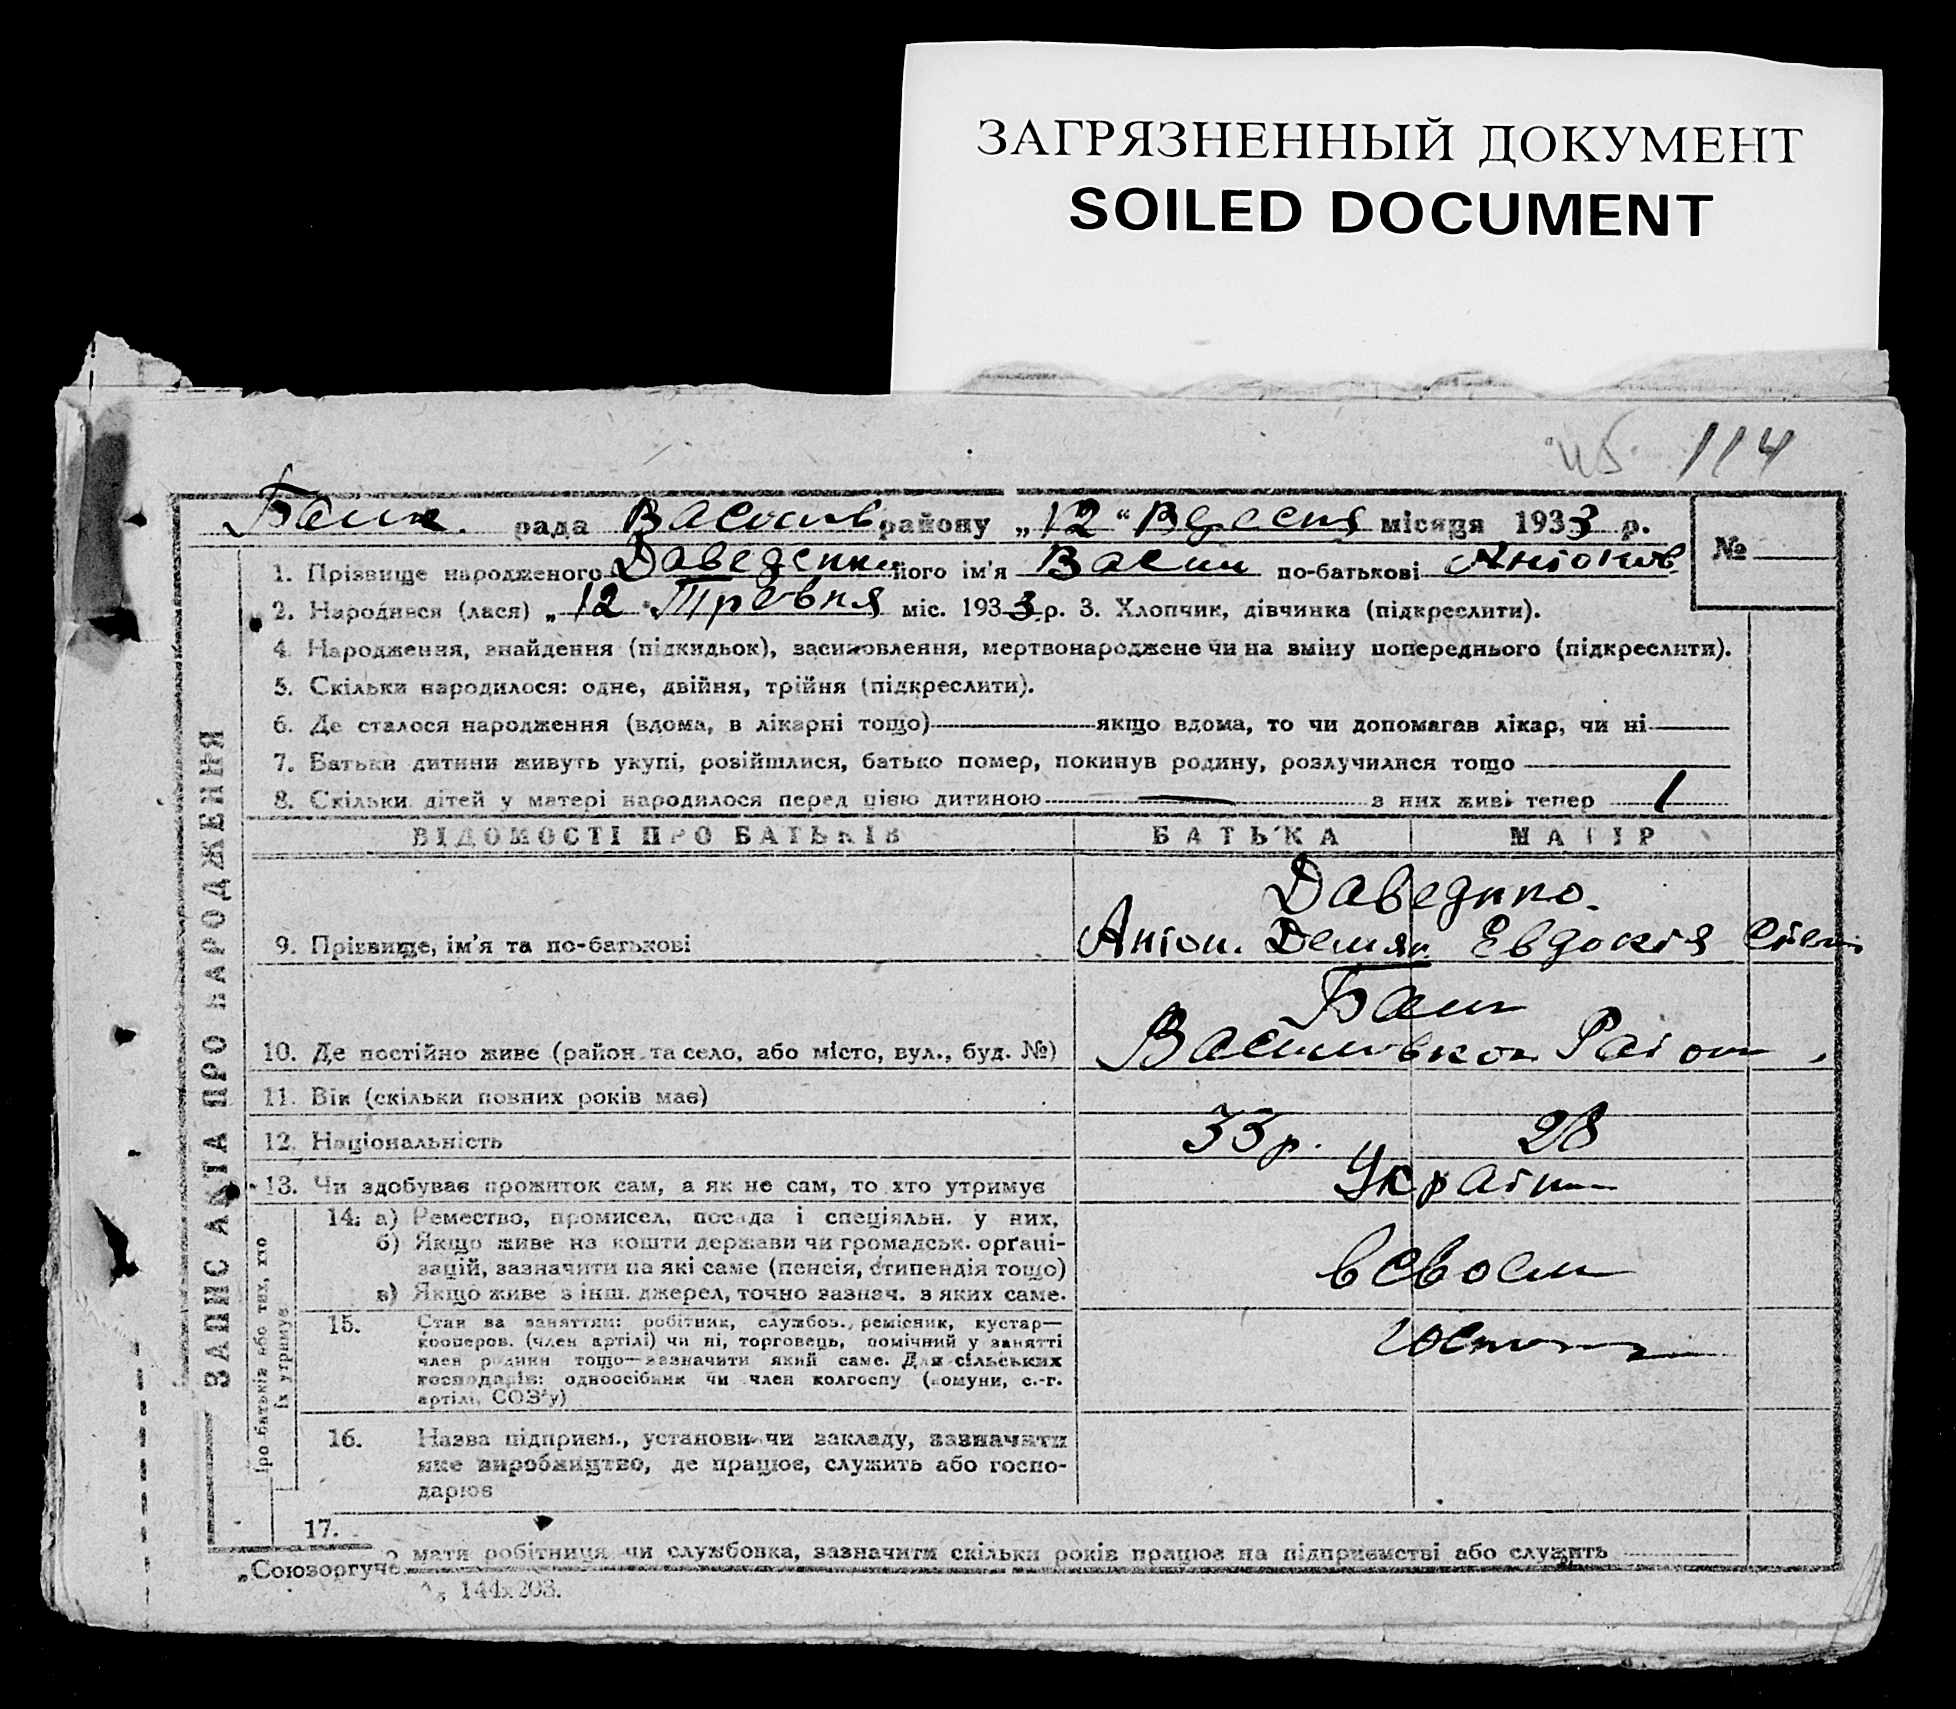 ЗАГРЯЗНЕННЫЙ ДОКУМЕНТ
SOILED DOCUMENT
114
рада Василів району „12“ Вересня місяця 1933 р.
№
1. Прізвище народженого Даведенко його ім'я Васил по-батькові Антонів
2. Народився (лася) „12“ Тревня міс. 1933 р. 3. Хлопчик, дівчинка (підкреслити).
4. Народження, знайдення (підкидьок), засиновлення, мертвонароджене чи на зміну попереднього (підкреслити).
5. Скільки народилося: одне, двійня, трійня (підкреслити).
6. Де сталося народження (вдома, в лікарні тощо) якщо вдома, то чи допомагав лікар, чи ні
7. Батьки дитини живуть укупі, розійшлися, батько помер, покинув родину, розлучилися тощо
8. Скільки дітей у матері народилося перед цією дитиною — з них живі тепер 1
ЗАПИС АКТА ПРО НАРОДЖЕННЯ
ВІДОМОСТІ ПРО БАТЬКІВ БАТЬКА МАТІР
Даведнко.
9. Прізвище, ім'я та по-батькові Антон. Демян. Евдокія
10. Де постійно живе (район та село, або місто, вул., буд. №) Раіон
11. Вік (скільки повних років має)
12. Національність 33 р. 28
13. Чи здобуває прожиток сам, а як не сам, то хто утримує Україн
Про батьків або тих, хто їх утримує
14. а) Ремество, промисел, посада і спеціяльн. у них,
б) Якщо живе на кошти держави чи громадськ. орґані-
зацій, зазначити на які саме (пенсія, стипендія тощо)
в) Якщо живе з інш. джерел, точно зазнач. з яких саме.
15. Стан за заняттям: робітник, службов., ремісник, кустар—
кооперов. (член артілі) чи ні, торговець, помічний у занятті
член родини тощо—зазначити який саме. Для сільських
господарів: одноосібник чи член колгоспу (комуни, с.-г.
артілі, СОЗ'у)
16. Назва підприєм., установи чи закладу, зазначити
яке виробництво, де працює, служить або госпо-
дарює
17.
мати робітниця чи службовка, зазначити скільки років працює на підприємстві або служить
„Союзоргуче
144х203.